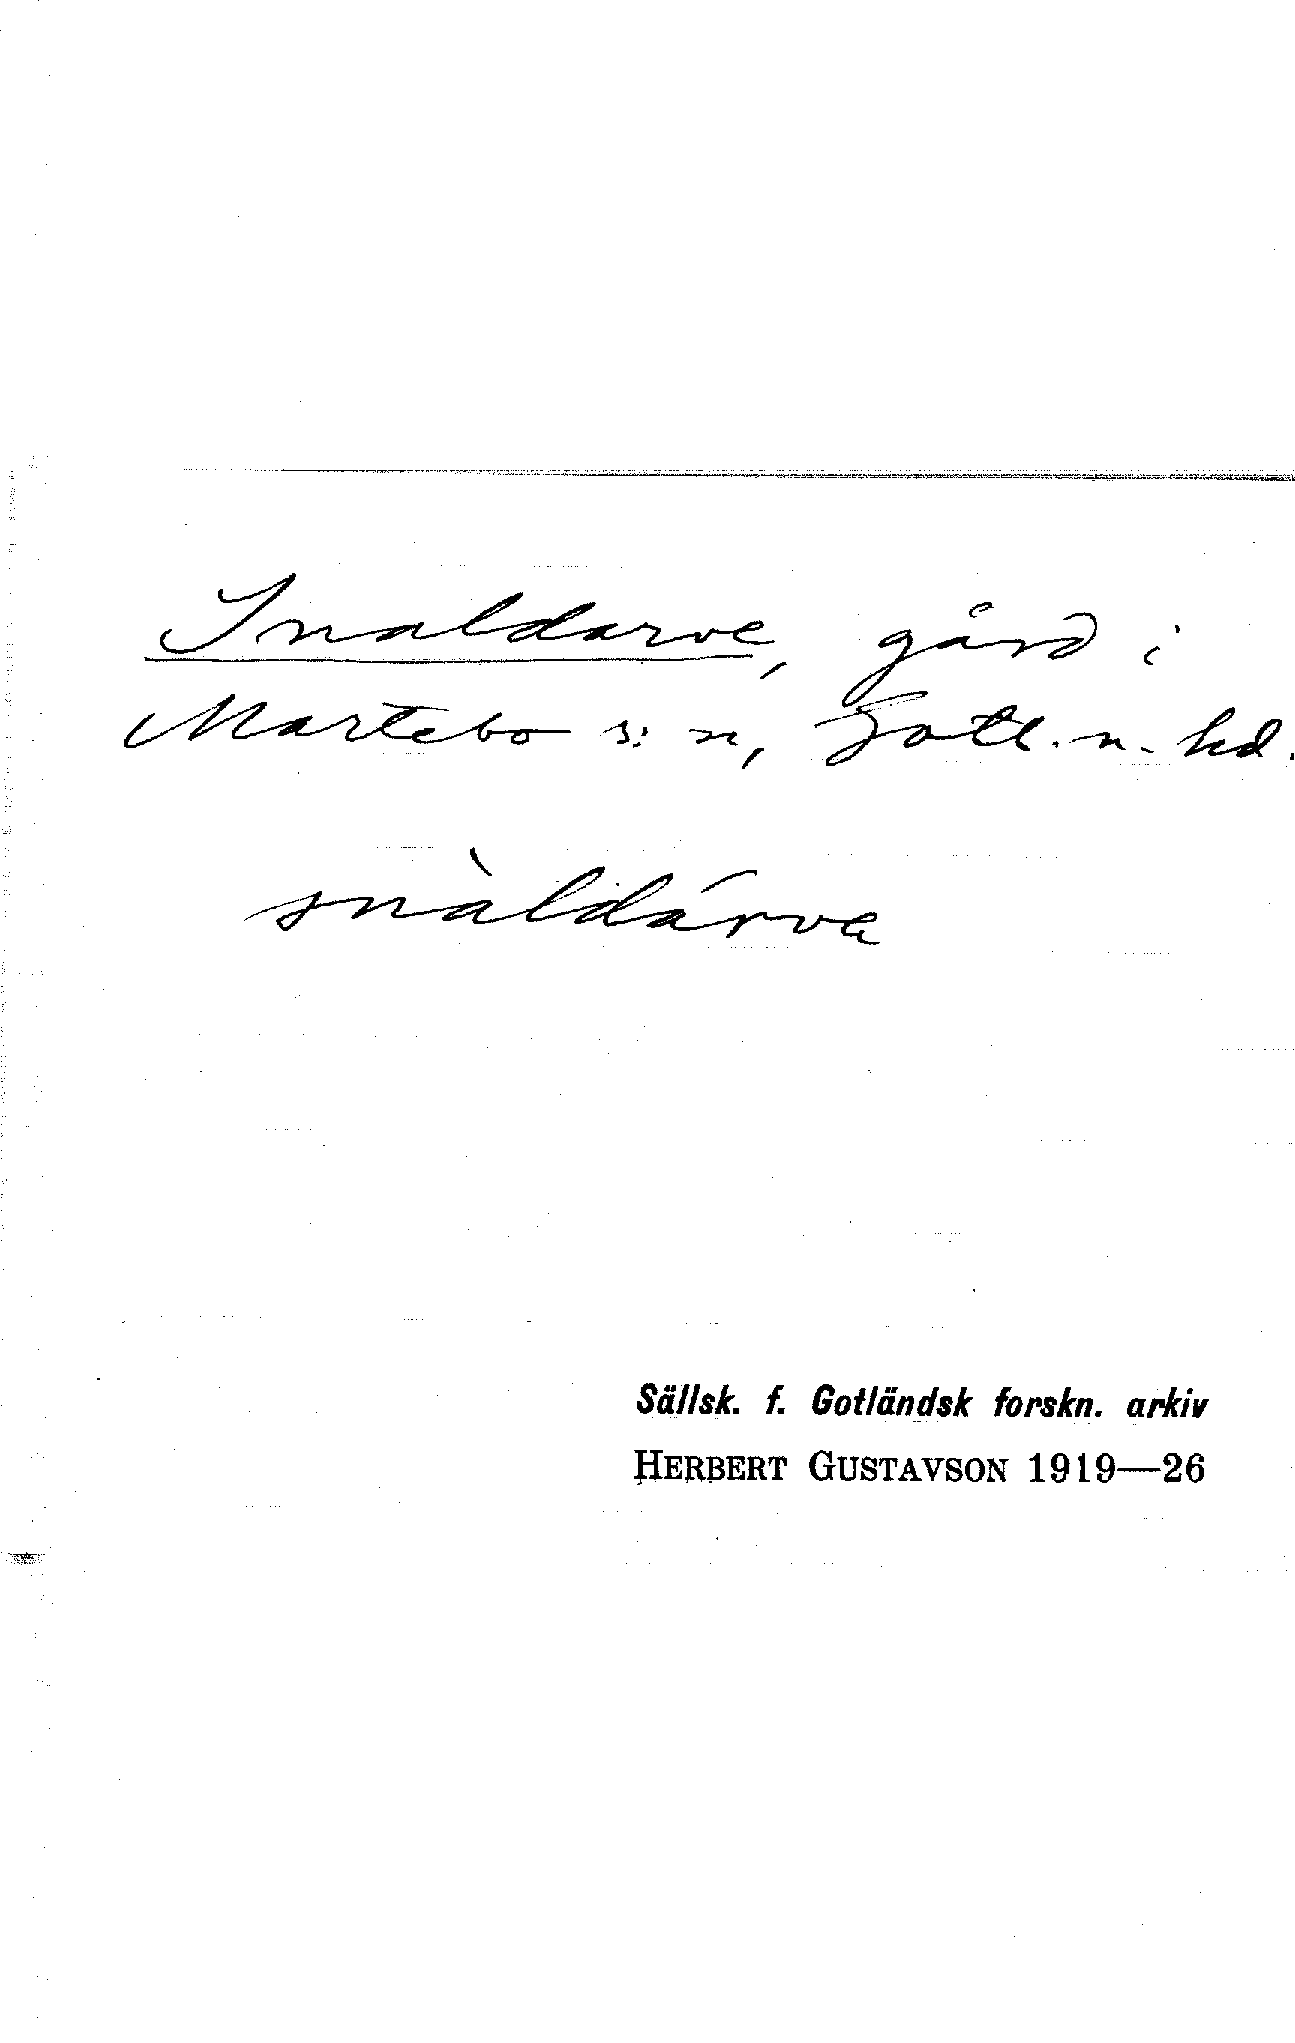 Snaldarve, gård i
Martebo s:n, Gotl. n. hd.
snàldárva
Sällsk. f. Gotländsk forskn. arkiv
HERBERT GUSTAVSON 1919—26